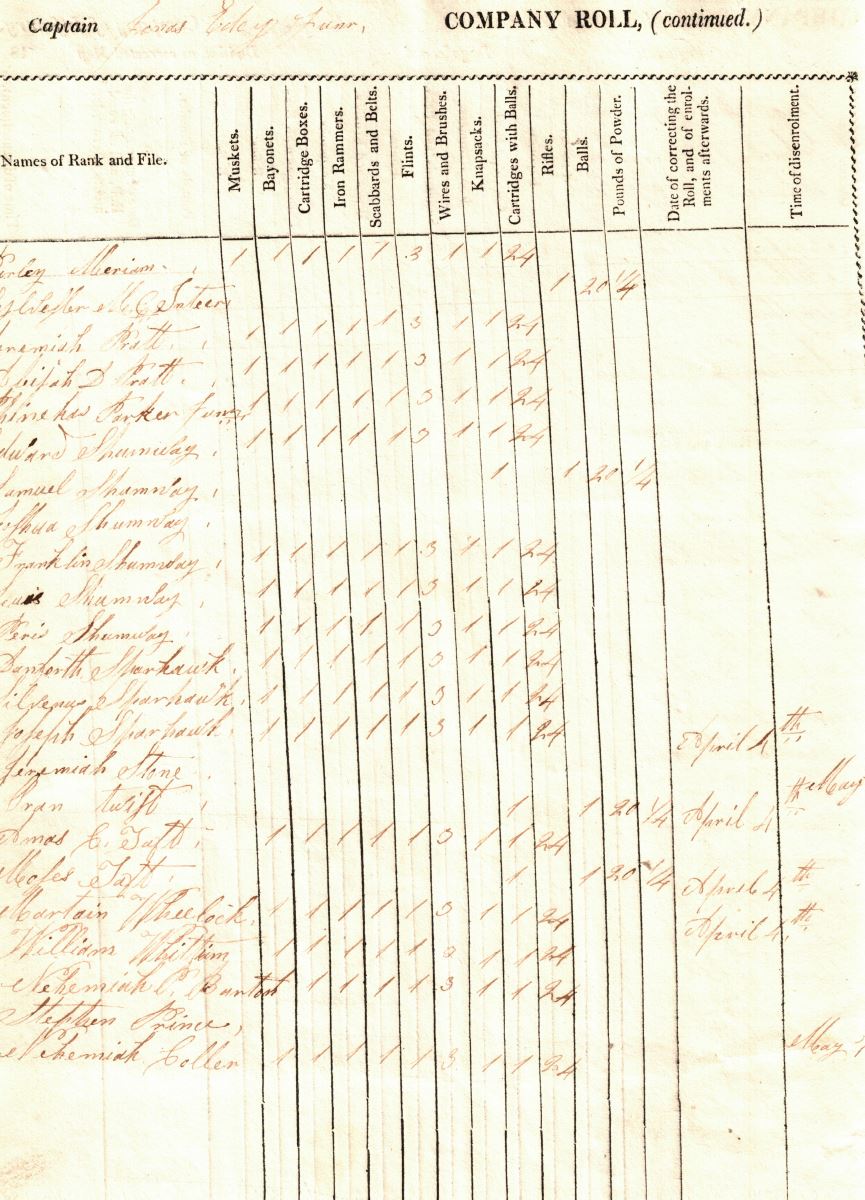 Captain Jonas Eddy Junr, COMPANY ROLL, (continued.)
Names of Rank and File. Muskets. Bayonets. Cartridge Boxes. Iron Rammers. Scabbards and Belts. Flints. Wires and Brushes. Knapsacks. Cartridges with Balls. Rifles. Balls. Pounds of Powder. Date of correcting the Roll, and of enrolments afterwards. Time of disenrolment.
Meriam 1 1 1 1 1 3 1 1 24
1 20 1/4
eremiah Pratt 1 1 1 1 1 3 1 1 24
D Pratt 1 1 1 1 1 3 1 1 24
hinehas Parker junr 1 1 1 1 1 3 1 1 24
dward Shumway 1 1 1 1 1 3 1 1 24
amuel Shumway 1 1 20 1/4
oshua Shumway
Franklin Shumway 1 1 1 1 1 3 1 1 24
Shumway 1 1 1 1 1 3 1 1 24
Peris Shumway 1 1 1 1 1 3 1 1 24
Danforth Sparhawk 1 1 1 1 1 3 1 1 24
Sparhawk 1 1 1 1 1 3 1 1 24
Joseph Sparhawk 1 1 1 1 1 3 1 1 24 April 4th
Jeremiah Stone May
twist 1 1 20 1/4 April 4th
Amos C. Taft 1 1 1 1 1 3 1 1 24
Moses Taft 1 1 20 1/4 April 4th
Martain Wheelock 1 1 1 1 1 3 1 1 24 April 4th
William 1 1 1 1 1 3 1 1 24
Nehemiah P. Barton 1 1 1 1 1 3 1 1 24
Stephen Prince,
Nehemiah Coller 1 1 1 1 1 3 1 1 24 May